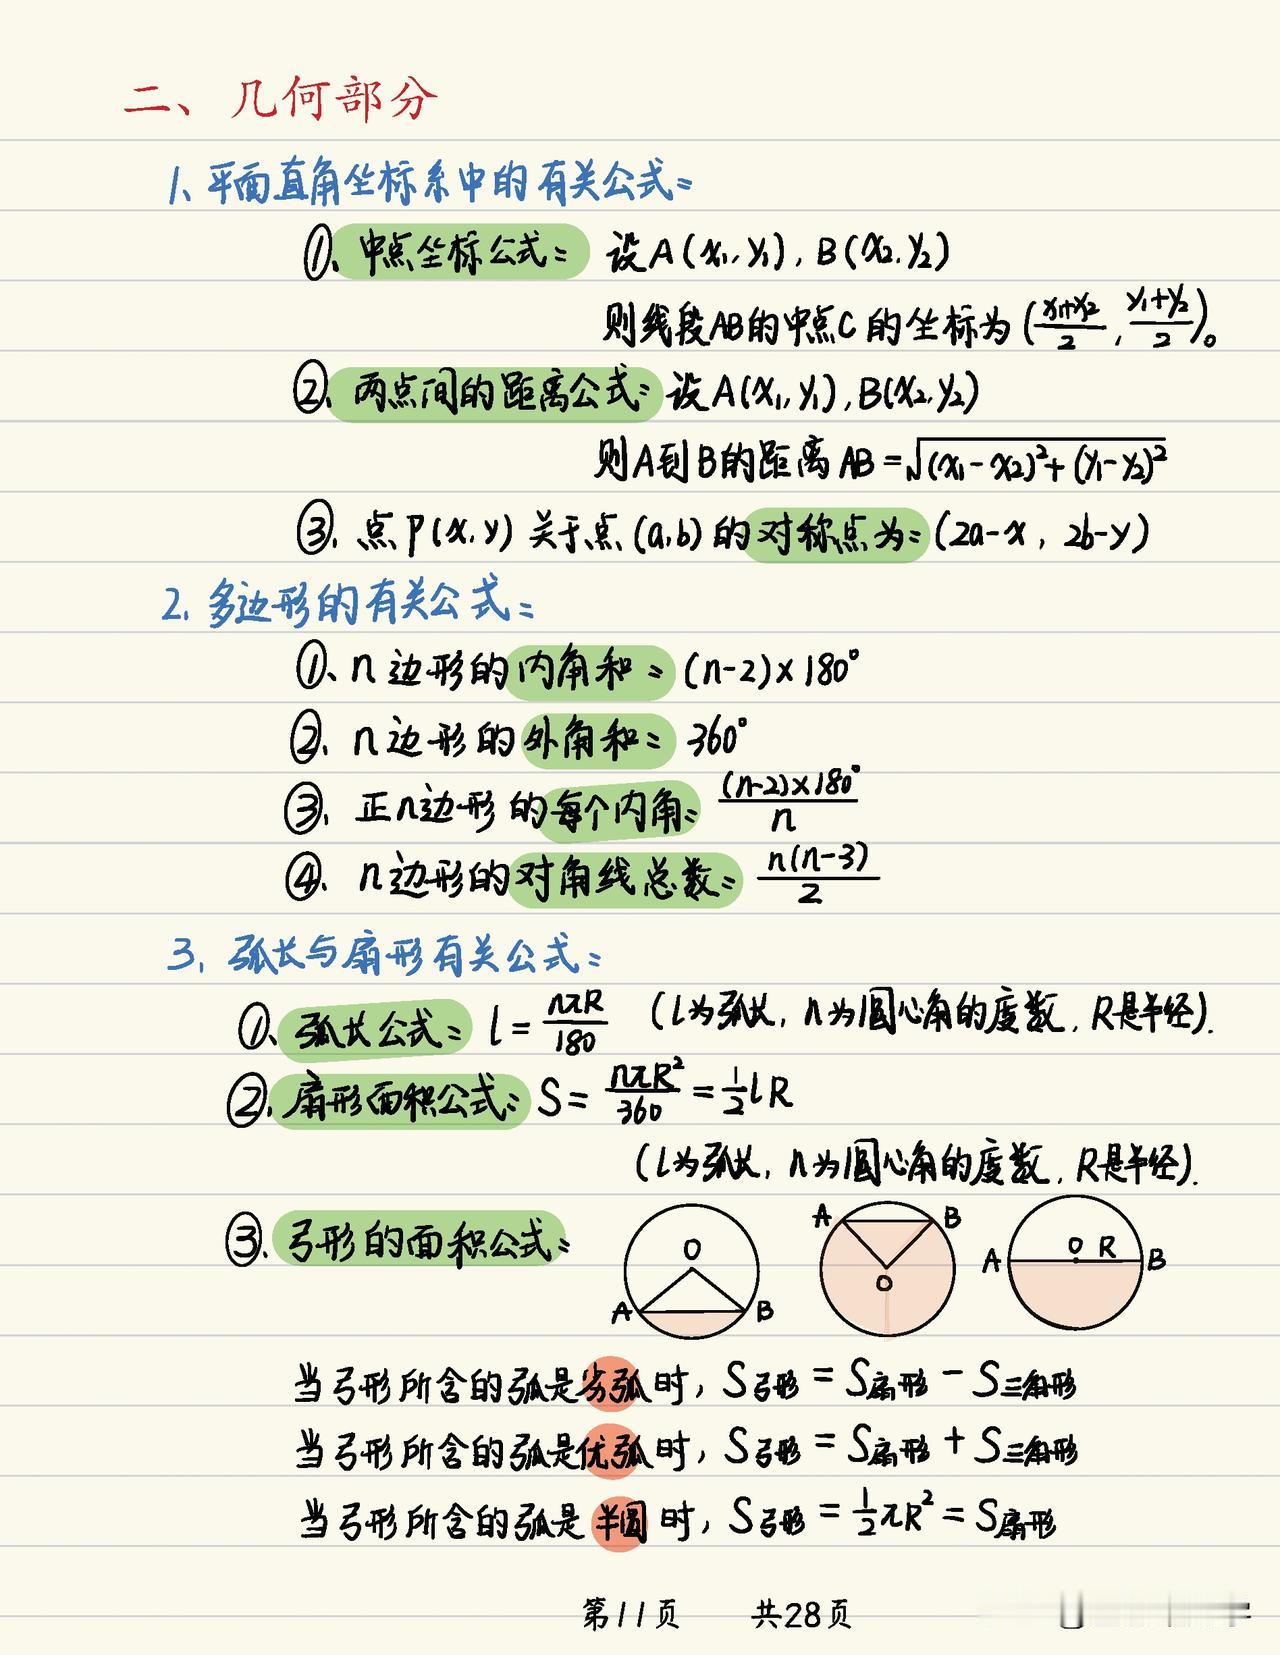 二、几何部分
1、平面直角坐标系中的有关公式:
①、中点坐标公式: 设A(x₁,y₁),B(x₂,y₂)
则线段AB的中点C的坐标为((x₁+x₂)/2,(y₁+y₂)/2)。
②、两点间的距离公式:设A(x₁,y₁),B(x₂,y₂)
则A到B的距离AB=√((x₁-x₂)²+(y₁-y₂)²)
③、点P(x,y)关于点(a,b)的对称点为:(2a-x,2b-y)
2、多边形的有关公式:
①、n边形的内角和:(n-2)×180°
②、n边形的外角和:360°
③、正n边形的每个内角:(n-2)×180°/n
④、n边形的对角线总数:n(n-3)/2
3、弧长与扇形有关公式:
①、弧长公式:l=nπR/180 (l为弧长,n为圆心角的度数,R是半径).
②、扇形面积公式:S=nπR²/360=½lR
(l为弧长,n为圆心角的度数,R是半径).
③、弓形的面积公式:
O A B
A B O
A O R B
当弓形所含的弧是劣弧时,S弓形=S扇形-S三角形
当弓形所含的弧是优弧时,S弓形=S扇形+S三角形
当弓形所含的弧是半圆时,S弓形=½πR²=S扇形
第11页 共28页